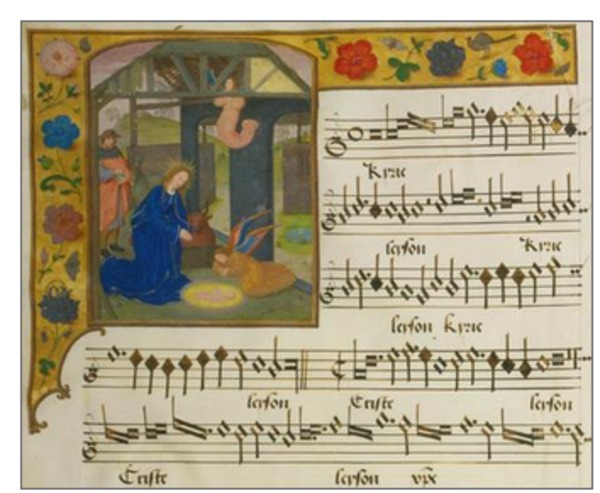 Kyrie
leyson Kyrie
leyson kyrie
leyson Criste leyson
Criste leyson xp̄e